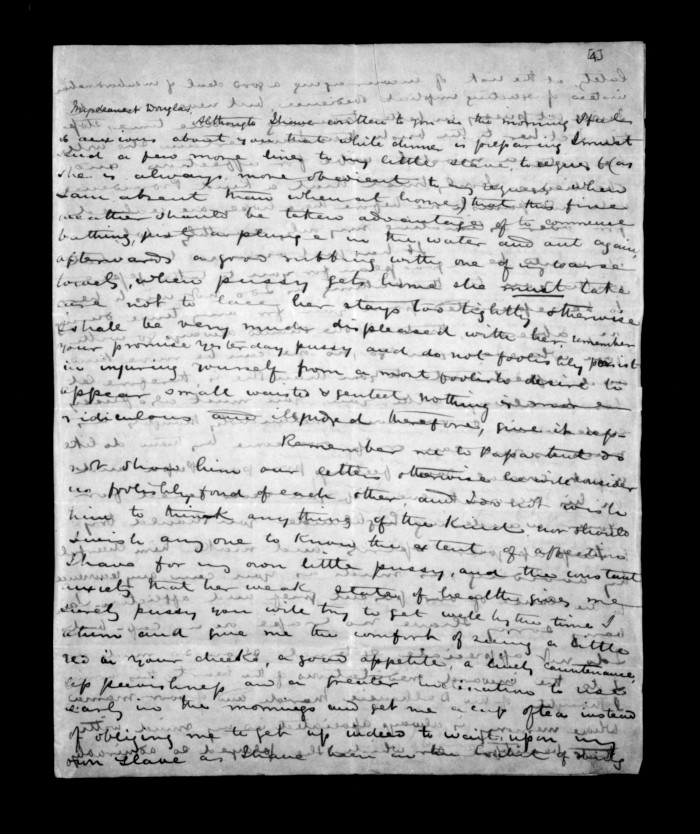 [4]
My dearest Douglas,
Although I have written to you in the morning I feel
so anxious about you that while dinner is preparing I must
add a few more lines to my little slave, to request (as
she is always more obedient to my requests when
I am absent than when at home,) that this fine
weather should be taken advantage of to commence
bathing, just a plunge in the water and out again,
afterwards a good rubbing with one of my coarse
towels, when pussy gets home she must take
care not to lace her stays too tightly otherwise
I shall be very much displeased with her, remember
your promise yesterday pussy and do not foolishly persist
in injuring yourself from a most foolish desire to
appear small waisted & genteel, nothing is more
ridiculous and illjudged therefore, give it up.
Remember me to Papa but do
not show him our letters otherwise he will consider
us foolishly fond of each other and I do not wish
him to think anything of the kind, nor should
I wish any one to know the extent of affection
I have for my own little pussy, and the constant
anxiety that her weak state of health gives me
surely pussy you will try to get well by the time I
return and give me the comfort of seeing a little
red in your cheeks, a good appetite, a lively countenance,
less peevishness and a greater inclination to rise
early in the mornings and get me a cup of tea instead
of obliging me to get up indeed to wait upon my
own slave as I have been in the habit of doing